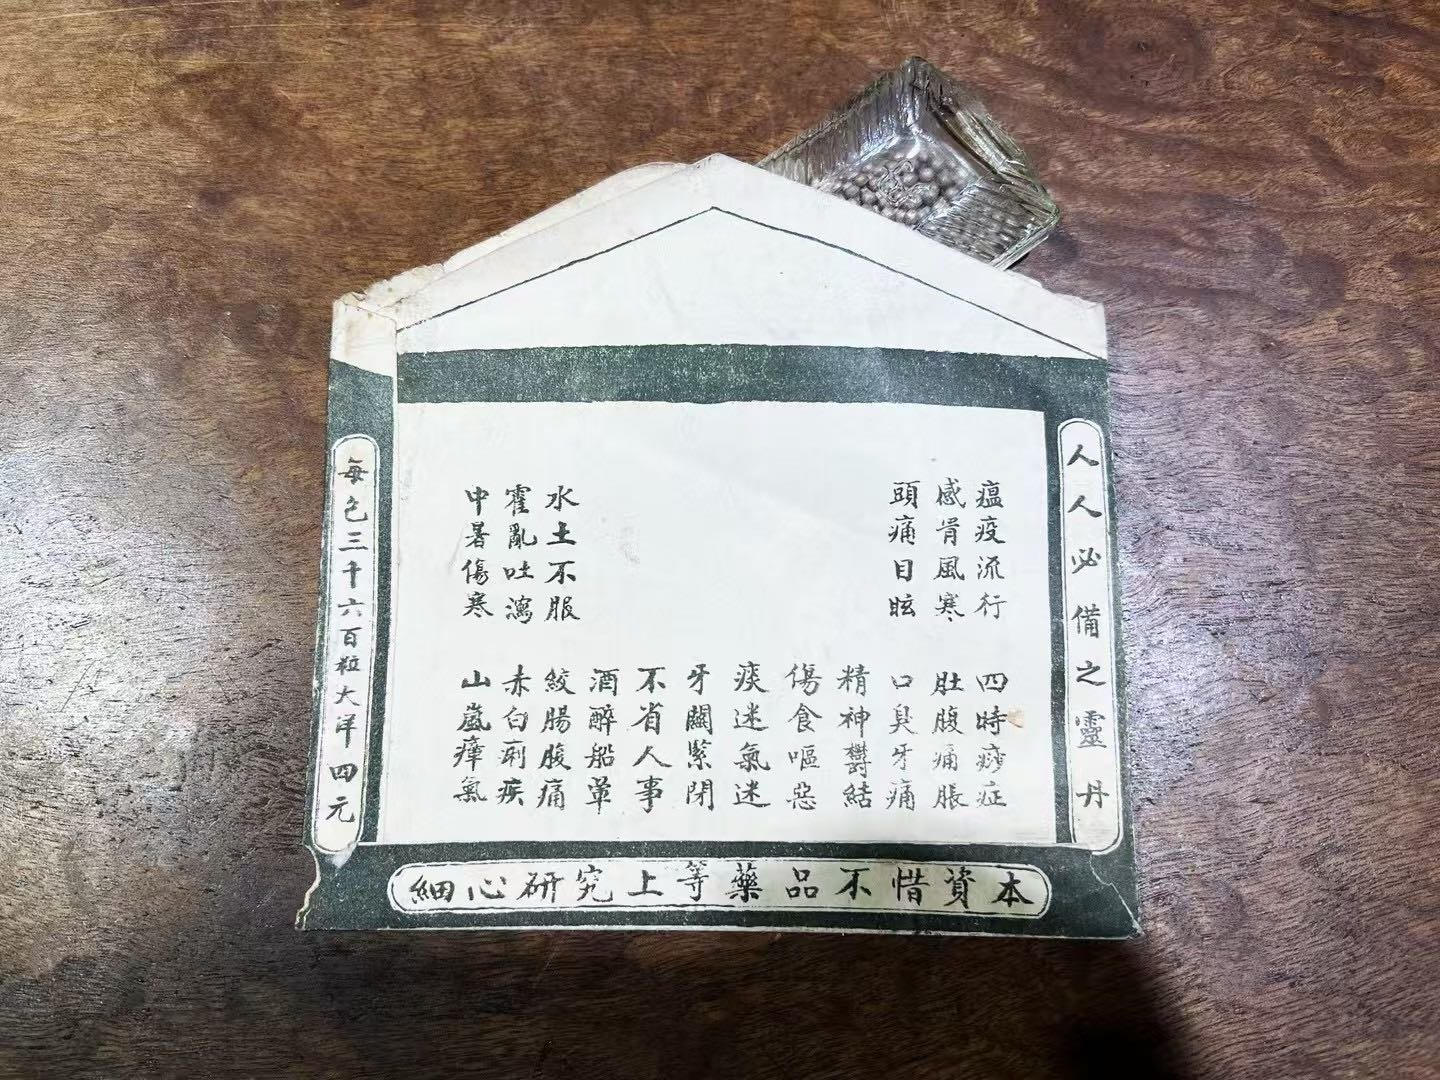 人人必備之靈丹
瘟疫流行
感冒風寒
頭痛目眩
水土不服
霍亂吐瀉
中暑傷寒
四時痧症
肚腹痛脹
口臭牙痛
精神鬱結
傷食嘔惡
痰迷氣迷
牙關緊閉
不省人事
酒醉船暈
絞腸腹痛
赤白痢疾
山嵐瘴氣
每包三千六百粒大洋四元
細心研究上等藥品不惜資本